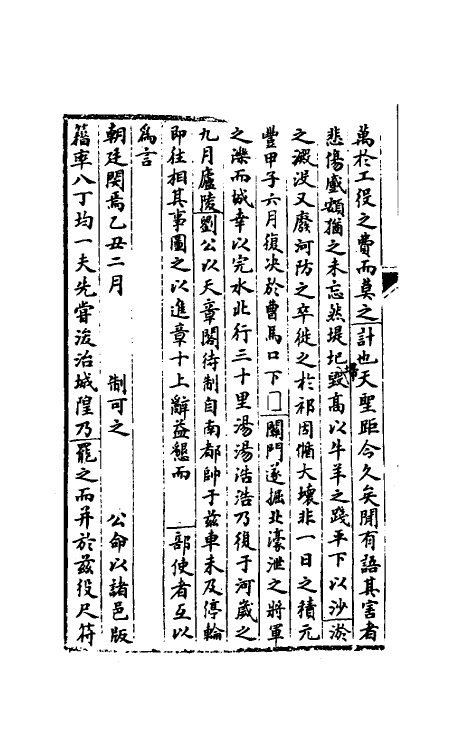 萬於工役之費而莫之計也天聖距今久矣聞有語其害者
悲傷戲頞猶之未忘然堤圮毀高以牛羊之踐平下以沙淤
之澱沒又廢河防之卒徙之於祁因循大壞非一日之積元
豐甲子六月復决於曹馬口下□闞門遂掘北濠泄之將軍
之濼而城幸以完水北行三十里湯湯浩浩乃復于河歲之
九月廬陵劉公以天章閣待制自南都帥于兹車未及停輪
即往相其事圖之以進章十上辭益懇而 部使者互以
為言
朝廷閔焉乙丑二月 制可之 公命以諸邑版
籍率八丁均一夫先嘗浚治城隍乃罷之而并於兹役尺符